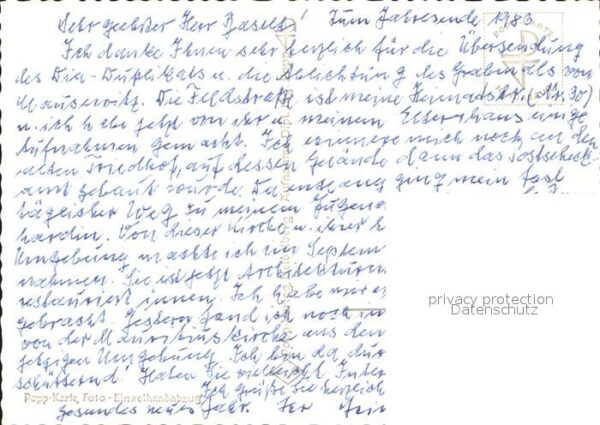 Sehr geehrter Herr Basels! Zum Jahresende 1983
Ich danke Ihnen sehr herzlich für die Übersendung
des Dia-Duplikats u. die Ablichtung des Grabmals von
Mauserwitz. Die Feldstraße ist meine Heimatstr. (Nr. 30)
u. ich habe jetzt von ihr u. meinem Elternhaus einige
Aufnahmen gemacht. Ich erinnere mich noch an den
alten Friedhof, auf dessen Gelände dann das Postscheck-
amt gebaut wurde. Da entlang ging mein fast
täglicher Weg zu meinem Jugend
Von dieser Kirche u. ihrer
Umgebung machte ich im Septem
nahmen. Sie ist jetzt Architektur
restauriert innen. Ich habe mir
gebracht. Gestern fand ich noch
von der Mauritiuskirche aus den
jetzigen Umgebung. Ich bin da
schütternd! Haben Sie vielleicht
Ich grüße Sie herzlich
gesundes neues Jahr. Ihr
privacy protection
Datenschutz
Popp-Karte, Foto-Einzelhandabzug